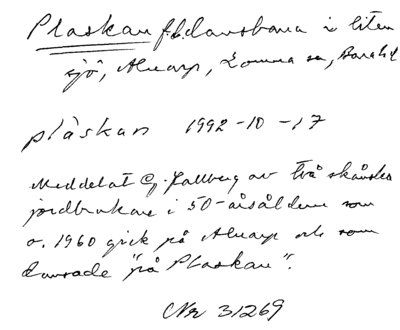 Plaskan f.d. dansbana i liten
sjö, Alnarp, Lomma sn, Bara hd
pláskan 1992-10-17
Meddelat G. Hallberg av två skånska
jordbrukare i 50-årsåldern som
o. 1960 gick på Alnarp och som
dansade "på Plaskan".
Nr 31269